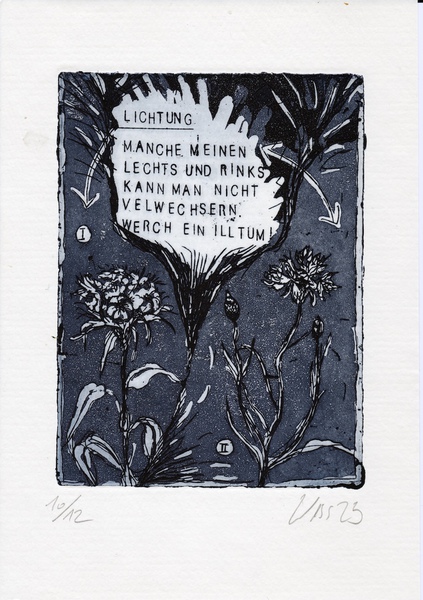 LICHTUNG
MANCHE MEINEN
LECHTS UND RINKS
KANN MAN NICHT
VELWECHSERN.
WERCH EIN ILLTUM!
I
II
10/12